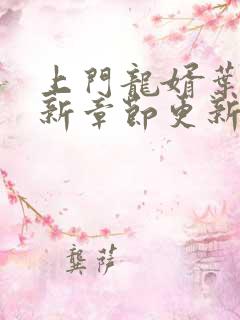 上門龍婿葉
新章節更新
龔萨